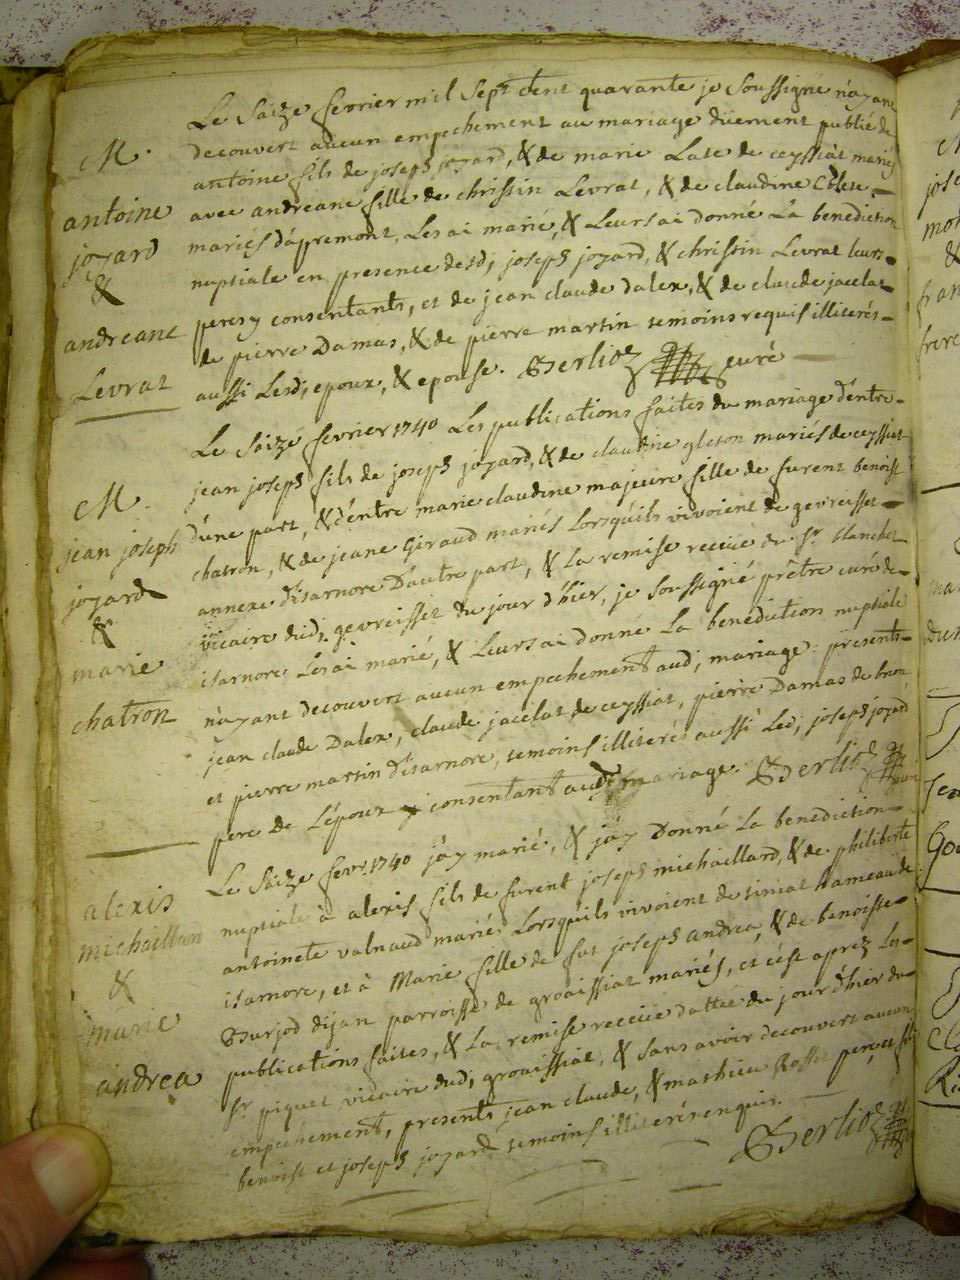 Le Saize fevrier mil Sept Cent quarante je Soussigné n'ayant
M. decouvert aucun empechement au mariage düement publié de
antoine fils de joseph joyard, & de marie Late de ceyssiat mariés
antoine avec andreane fille de christin Levrat, & de claudine
joyard mariés d'apremont, Les ai marié, & Leurs ai donné La benediction
& nuptiale en presence desd; joseph joyard, & christin Levrat leurs
andreane peres y consentants, et de jean claude dalex, & de claude jacelat
de pierre Damas, & de pierre martin temoins requis illiterés
Levrat aussi Lesd; epoux, & epouse. Berlioz curé
Le Saize fevrier 1740 Les publications faites du mariage d'entre
M. jean joseph fils de joseph joyard, & de claudine gleton mariés de ceyssiat
d'une part, & d'entre marie claudine majeure fille de furent benoist
jean joseph chatron, & de jeane Giraud mariés Lorsqu'ils vivoient de gevreisset
joyard annexe d'isarnore D'autre part, & La remise recüe du Sr. blanchet
& vicaire dud; gevreisset du jour d'hier, je Soussigné prêtre curé de
marie isarnore Les ai marié, & Leurs ai donné La benediction nuptiale
chatron n'ayant decouvert aucun empechement aud; mariage: presents
jean claude Dalex, claude jacelat de ceyssiat, pierre Damas de
et pierre martin d'isarnore, temoins illiterés aussi Led; joseph joyard
pere de L'epoux y consentant aud; mariage. Berlioz
Le Saize fevr. 1740 j'ay marié, & j'ay Donné La benediction
alexis nuptiale à alexis fils de furent joseph michaillard, & de philiberte
michaillard antoinete valnaud mariés Lorsquils vivoient de hameau de
& isarnore, et à Marie fille de fut joseph andrea, & de benoiste
marie Burjod dijan parroisse de groaissiat mariés, et c'est aprez Les
andrea publications faites, & La remise recüe dattée du jour d'hier du
Sr piquet vicaire dud; groaissiat, & sans avoir decouvert aucun
empechement, presents jean claude, & mathieu Rosset pere, et fils
benoist et joseph joyard temoins illiterés enquis.
Berlioz